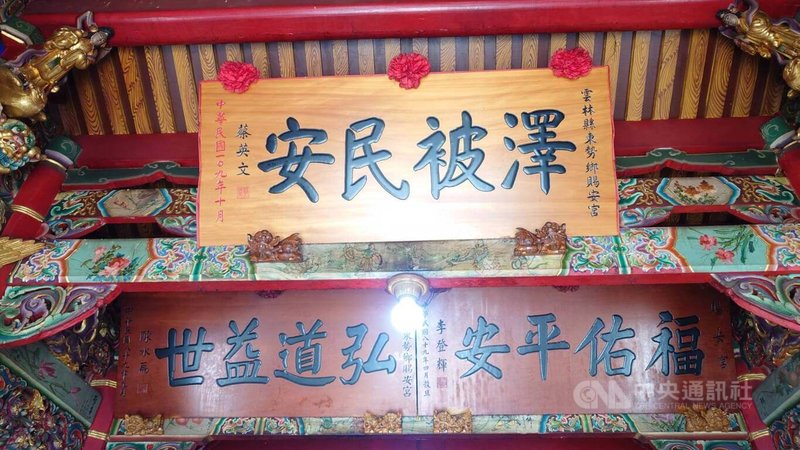 雲林縣東勢鄉賜安宮
澤被民安
蔡英文
中華民國一〇九年十月
福佑平安
李登輝
民國八十九年四月穀旦
東勢鄉賜安宮
弘道益世
陳水扁
中央通訊社
CENTRAL NEWS AGENCY